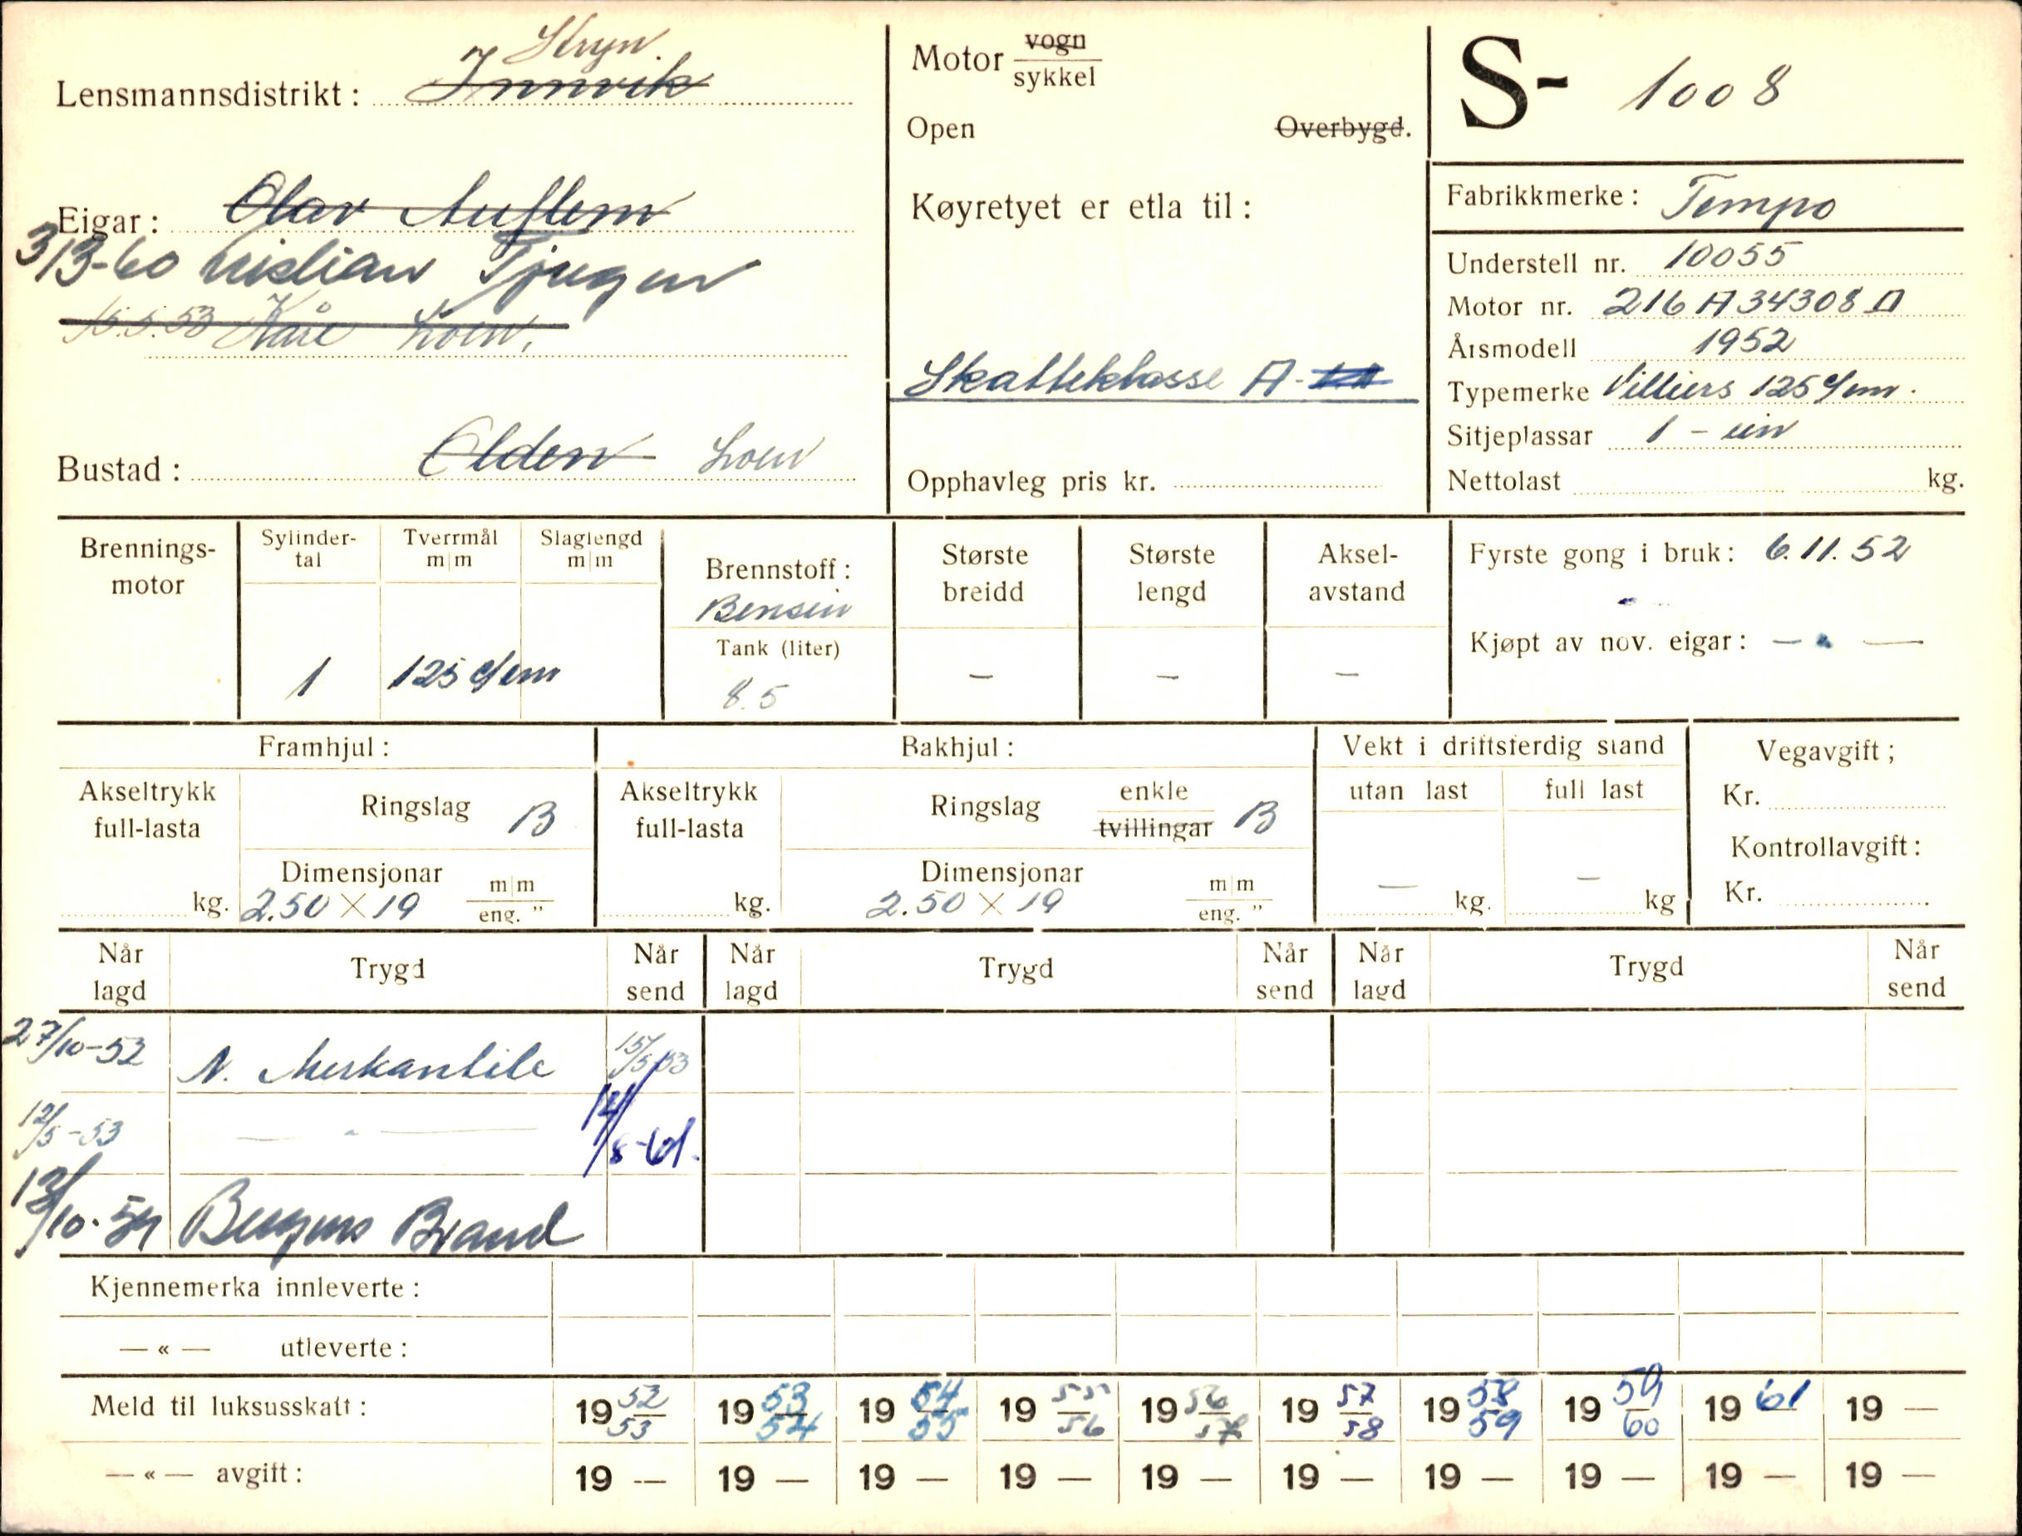 Lensmannsdistrikt: Innvik Stryn.
Eigar: Olav Auflem
3/3-60 Kristian Tjugen
15.5.53 Kåre Loen.
Bustad: Olden Loen
Motor vogn
sykkel
Open Overbygd.
Køyretyet er etla til:
Skatteklasse A.
Opphavleg pris kr.
S- 1008
Fabrikkmerke: Tempo
Understell nr. 10055
Motor nr. 216 A 34308
Årsmodell 1952
Typemerke Villiers 125 c/cm.
Sitjeplassar 1 - ein
Nettolast kg.
Brennings-
motor
Sylinder-
tal
1
Tverrmål
m|m
125 c/cm
Slaglengd
m|m
Brennstoff:
Bensin
Tank (liter)
8.5
Største
breidd
—
Største
lengd
—
Aksel-
avstand
—
Fyrste gong i bruk: 6.11.52
Kjøpt av nov. eigar: — " —
Framhjul:
Akseltrykk
full-lasta
kg.
Ringslag B
Dimensjonar
2.50 × 19
m|m
eng. "
Bakhjul:
Akseltrykk
full-lasta
kg.
Ringslag enkle
tvillingar B
Dimensjonar
2.50 × 19
m|m
eng. "
Vekt i driftsferdig stand
utan last
— kg.
full last
— kg
Vegavgift;
Kr.
Kontrollavgift:
Kr.
Når
lagd Trygd Når
send Når
lagd Trygd Når
send Når
lagd Trygd Når
send
27/10-52 N. Merkantile 15/5 53
12/5-53 — " — 14/8-61.
12/10-54 Bergens Brand
Kjennemerka innleverte:
— « — utleverte:
Meld til luksusskatt: 19 52/53 19 53/54 19 54/55 19 55/56 19 56/57 19 57/58 19 58/59 19 59/60 19 61 19 —
— « — avgift: 19 — 19 — 19 — 19 — 19 — 19 — 19 — 19 — 19 — 19 —